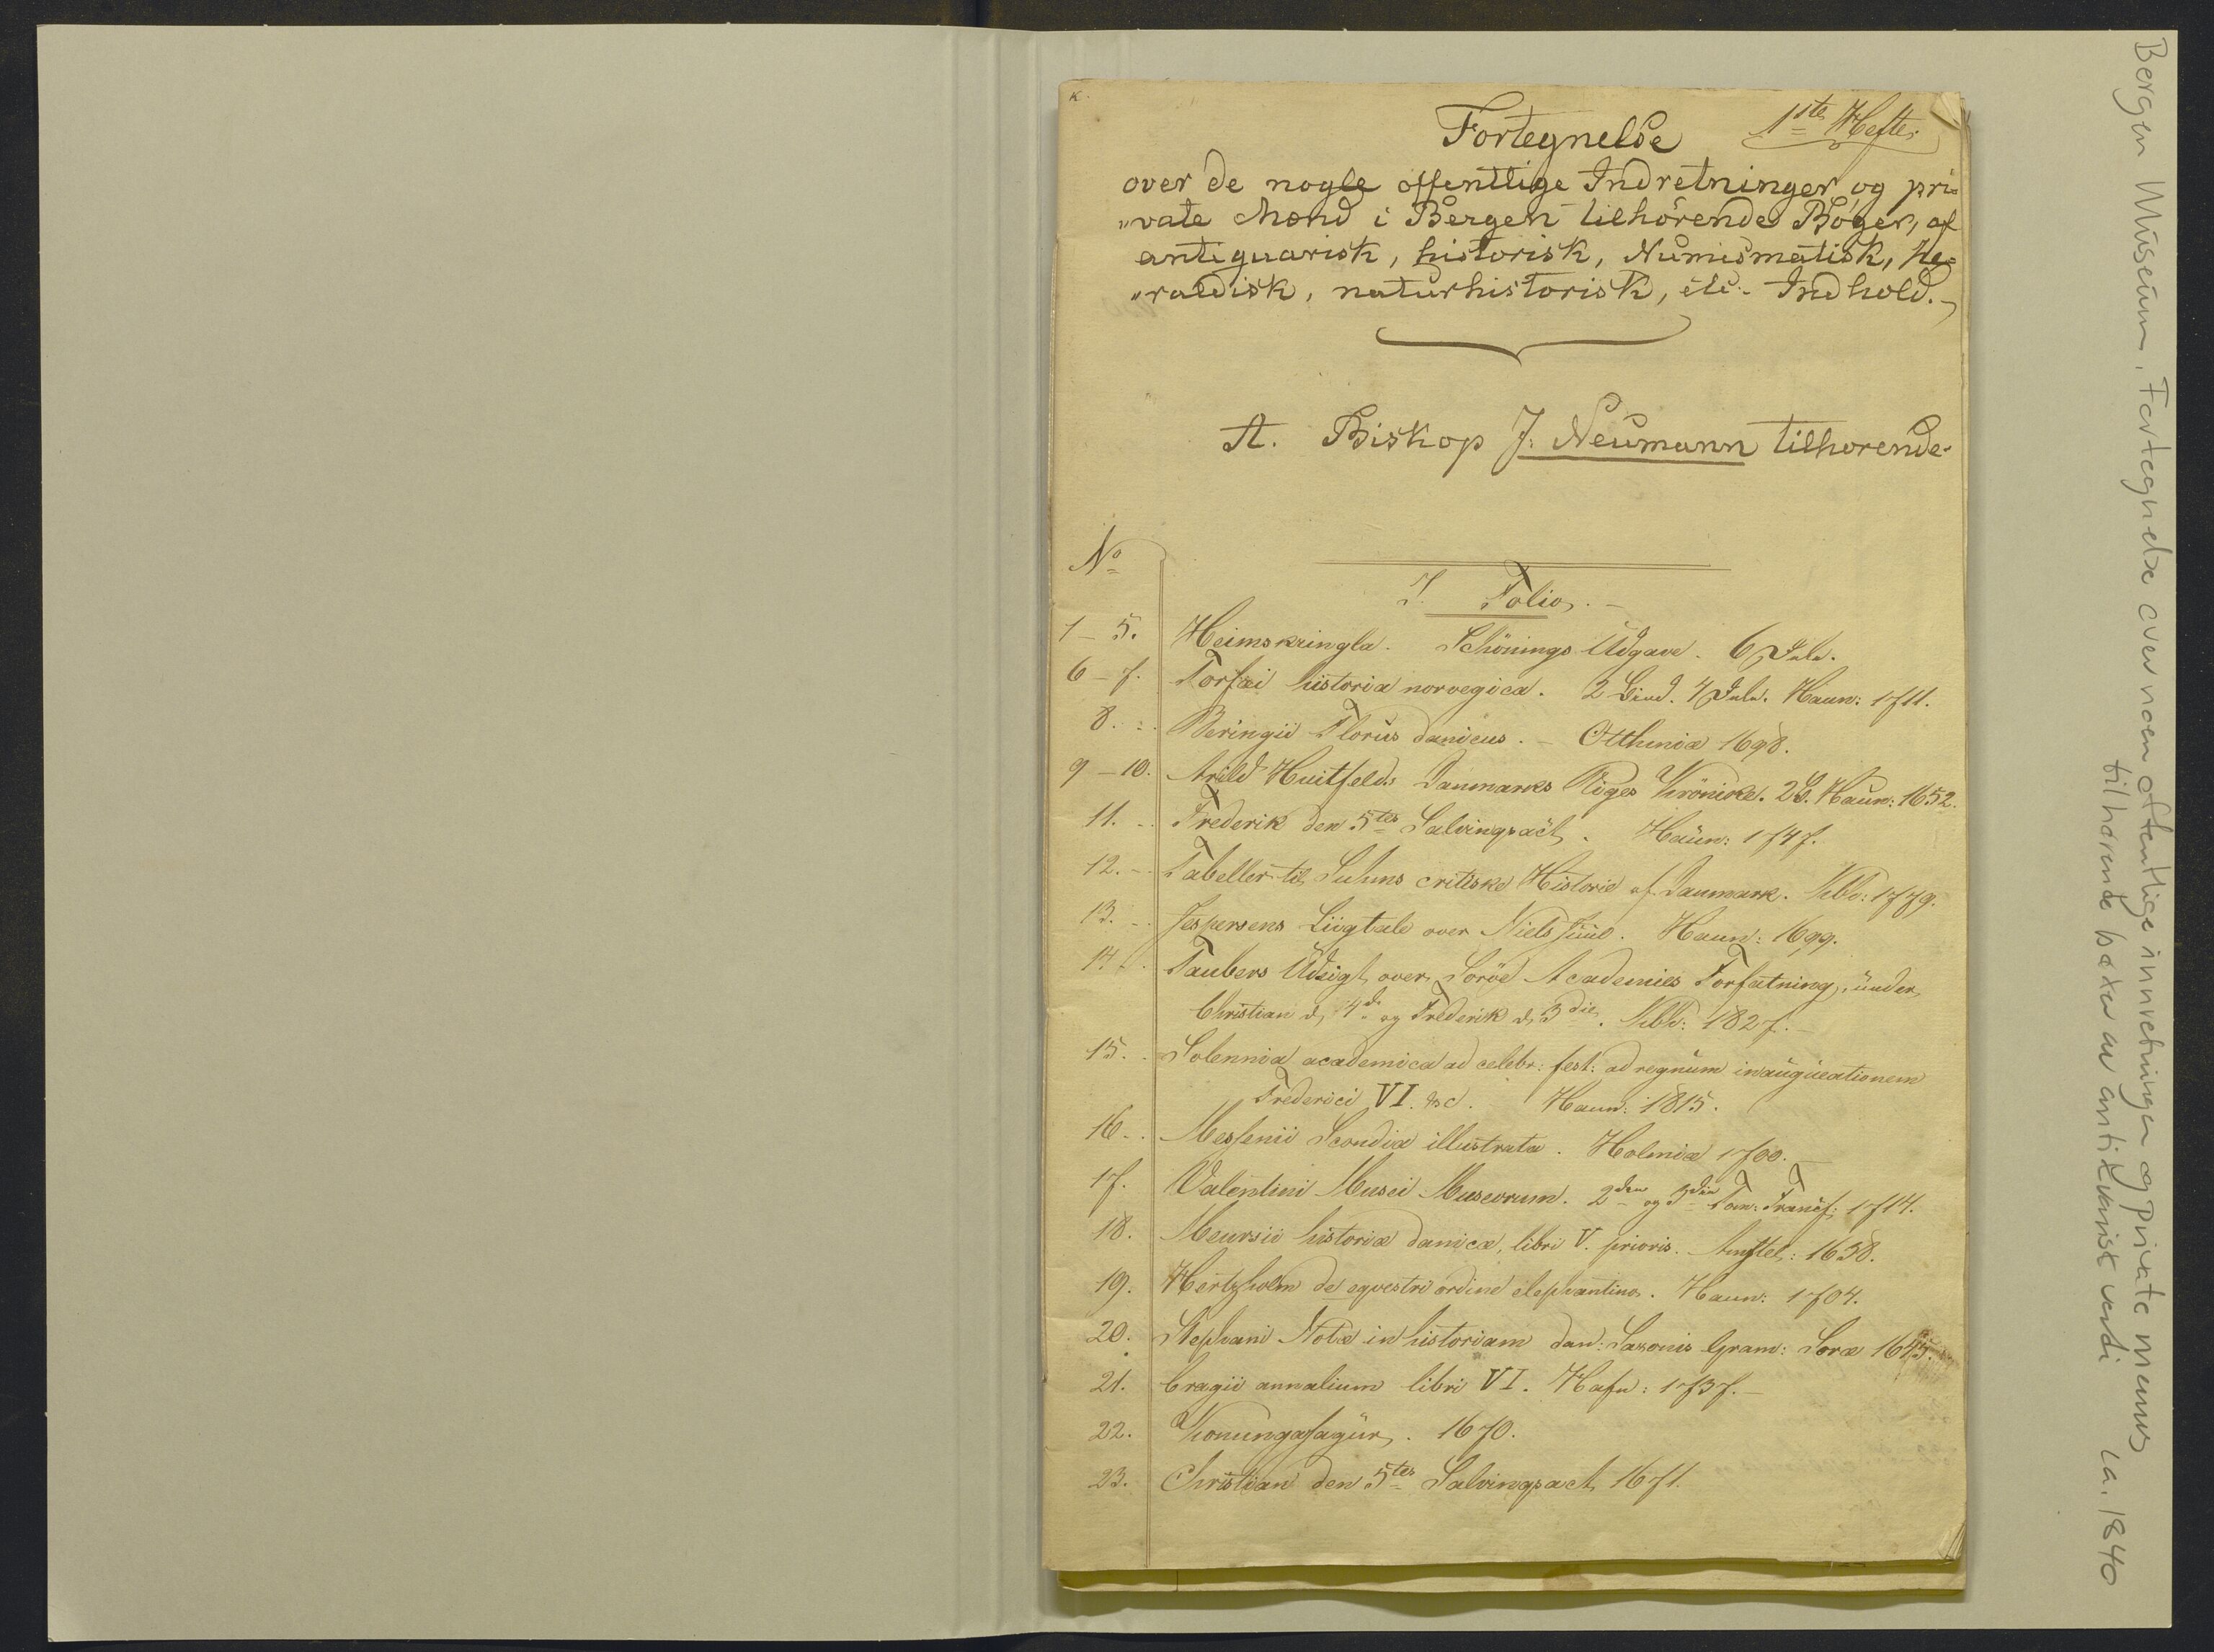 1ste Hefte.
Fortegnelse
over de nogle offentlige Indretninger og pri=
"vate Mænd i Bergen tilhørende Bøger, af
antiquarisk, historisk, Numismatisk, He=
"raldisk, naturhistorisk, etc. Indhold.
A. Biskop J: Neumann tilhørende.
No
I. Folio.
1 – 5. Heimskringla. Schönings Udgave. 6
6 – 7. Torfæi historia norvegica. 2 Bind. 4 Haun: 1711.
8. Beringii Florus danicus. – Otthiniæ 1698.
9 – 10. Arild Huitfelds Danmarks Riges Krönike. 2 B. Haun: 1652.
11. Frederik den 5tes Salvingsact. Haun: 1747.
12. Tabeller til Suhms critiske Historie af Danmark. Kbh: 1779.
13. Jespersens Liigtale over Niels Juul. Haun: 1699.
14. Taubers Udsigt over Soröe Academies Forfatning, under
Christian d. 4de og Frederik d. 3die. Kbh: 1827.
15. Solennia academica ad celebr: fest: ad regnum inaugurationem
Frederici VI. &c. Haun: 1815.
16. Messenii Scondia illustrata. Holmiæ 1700.
17. Valentini Musei Museorum. 2den og 3die Tom: Francf: 1714.
18. Meursii historiæ danicæ, libri V. prioris. Amstel: 1638.
19. Hertzholm de eqvestri ordine elephantino. Haun: 1704.
20. Stephani Notæ in historiam dan: Saxonis Gram: Soræ 1645.
21. Cragii annalium libri VI. Hafn: 1737.
22. Konungasagur. 1670.
23. Christian den 5tes Salvingsact 1671.
Bergen Museum. Fortegnelse over noen offentlige innretninger og private menns
tilhørende bøker av antikvarisk verdi ca. 1840